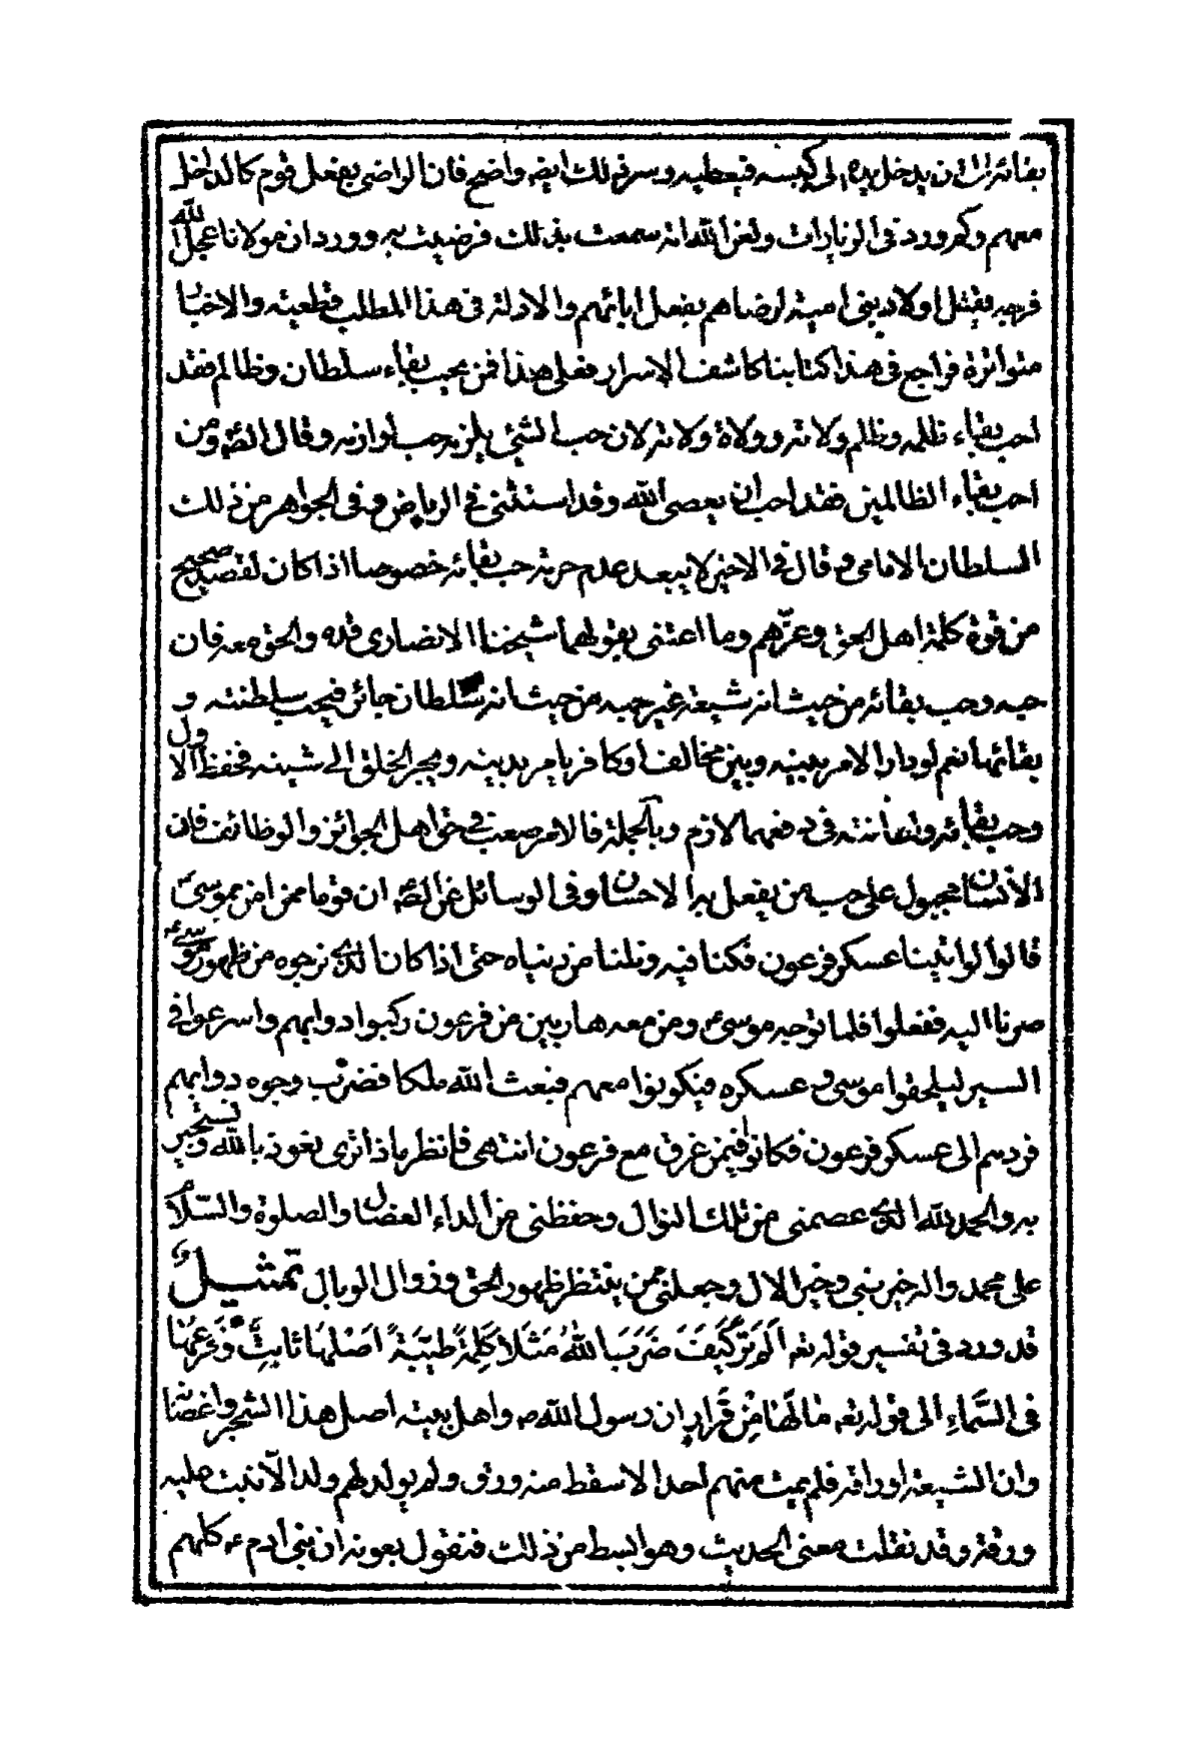 بقائه الی ان یدخل یده الی کیسه فیعطیه وسر ذلک ایضه واضح فان الراضی بفعل قوم کالداخل
معهم وکم ورد فی الزیارات ولعن الله امة سمعت بذلک فرضیت به وورد ان مولانا عجل الله
فرجه یقتل اولاد بنی امیة لرضاهم بفعل ابائهم والادلة فی هذا المطلب قطعیة والاخبار
متواترة فراجع فی هذا کتابنا کاشف الاسرار فعلی هذا فمن یحب بقاء سلطان وظالم فقد
احب بقاء ظلمه وظلم ولاته وولاة ولاته لان حب الشیئ یلزمه حب لوازمه وقال الصه ومن
احب بقاء الظالمین فقد احب ان یعصی الله وقد استثنی فی الریاض وفی الجواهر من ذلک
السلطان الامامی وقال فی الاخیر لا یبعد عدم حرمة حب بقائه خصوصا اذا کان لقصد صحیح
من قوة کلمة اهل الحق وعزهم وما اعتنی بقولهما شیخنا الانصاری قده والحق معه فان
حبه وحب بقائه من حیث انه شیعة غیر حبه من حیث انه سلطان جائر فیحب سلطنته و
بقائها نعم لو دار الامر بینه وبین مخالف او کافر یامر بدینه ویجبر الخلق الی شینه فحفظ الاول
وحب بقائه واعانته فی دفعهما لازم وبالجملة فالامر صعب فی حق اهل الجوائز والوظائف فان
الانسان مجبول علی حب من یفعل به الاحسان وفی الوسائل عن الصه ان قوما ممن امن بموسیٰ
قالوا لو اتینا عسکر فرعون فکنا فیه ونلنا من دنیاه حتی اذا کان الذی نرجوه من ظهور موسیٰ
صرنا الیه ففعلوا فلما توجه موسیٰ ومن معه هاربین من فرعون رکبوا دوابهم واسرعوا فی
السیر لیلحقوا موسی وعسکره فیکونوا معهم فبعث الله ملکا فضرب وجوه دوابهم
فردهم الی عسکر فرعون فکانوا فیمن غرق مع فرعون انتهی فانظر ماذا تری نعوذ بالله ونستجیر
به والحمد لله الذی عصمنی من تلک النوال وحفظنی من الداء العضال والصلوة والسلام
علی محمد واله خیر نبی وخیر الال وجعلنی ممن ینتظر ظهور الحق وزوال الوبال تمثیل
قد ورد فی تفسیر قوله تعه اَلَم تَرَ کَیفَ ضَرَبَ اللهُ مَثَلاً کَلِمَةً طَیِّبَةً اَصلُهَا ثابِتٌ وَفَرعُهَا
فی السَّماءِ الی قوله تعه مٰا لَهٰا مِن قَرارٍ ان رسول الله صه واهل بیته اصل هذا الشجر واغصانه
وان الشیعة اوراقه فلم یمت منهم احد الا سقط منه ورق ولم یولد لهم ولد الا نبت علیه
ورقة وقد نقلت معنی الحدیث وهو ابسط من ذلک فنقول بعونه ان بنی ادم ع کلهم